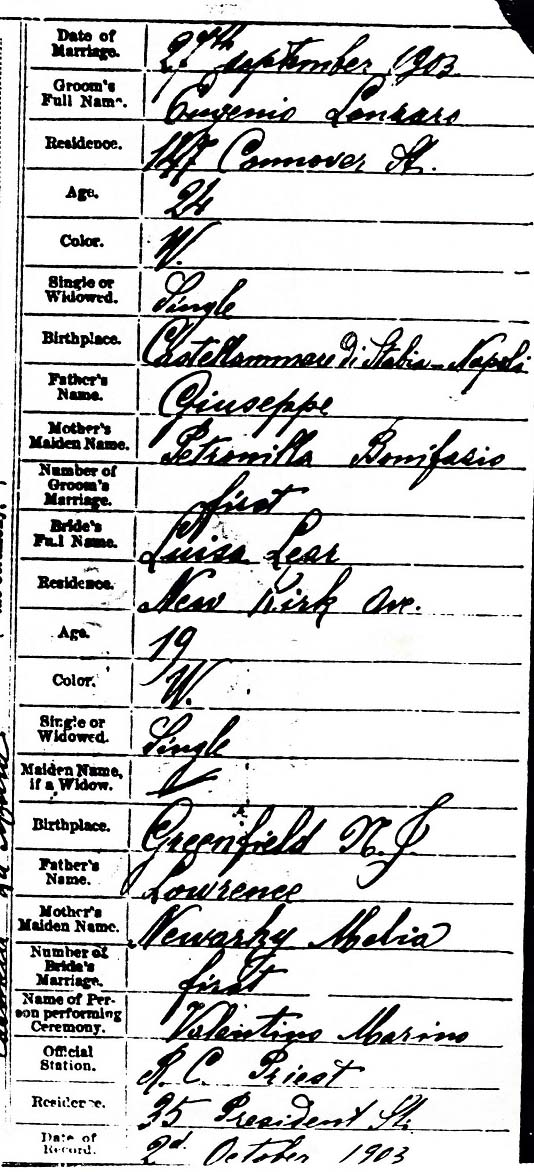 Date of Marriage. 27th September 1903
Groom's Full Name. Eugenio Lonzaro
Residence. 147 Connover St.
Age. 24
Color. W.
Single or Widowed. Single
Birthplace. Castellammare di Stabia - Napoli
Father's Name. Giuseppe
Mother's Maiden Name. Petronilla Bonifasio
Number of Groom's Marriage. first
Bride's Full Name. Luisa Lear
Residence. New Kirk Ave.
Age. 19
Color. W.
Single or Widowed. Single
Maiden Name, if a Widow.
Birthplace. Greenfield N.J.
Father's Name. Lowrence
Mother's Maiden Name. Newarky
Number of Bride's Marriage. first
Name of Person performing Ceremony. Valentino Marino
Official Station. R. C. Priest
Residence. 35 President St.
Date of Record. 2d October 1903